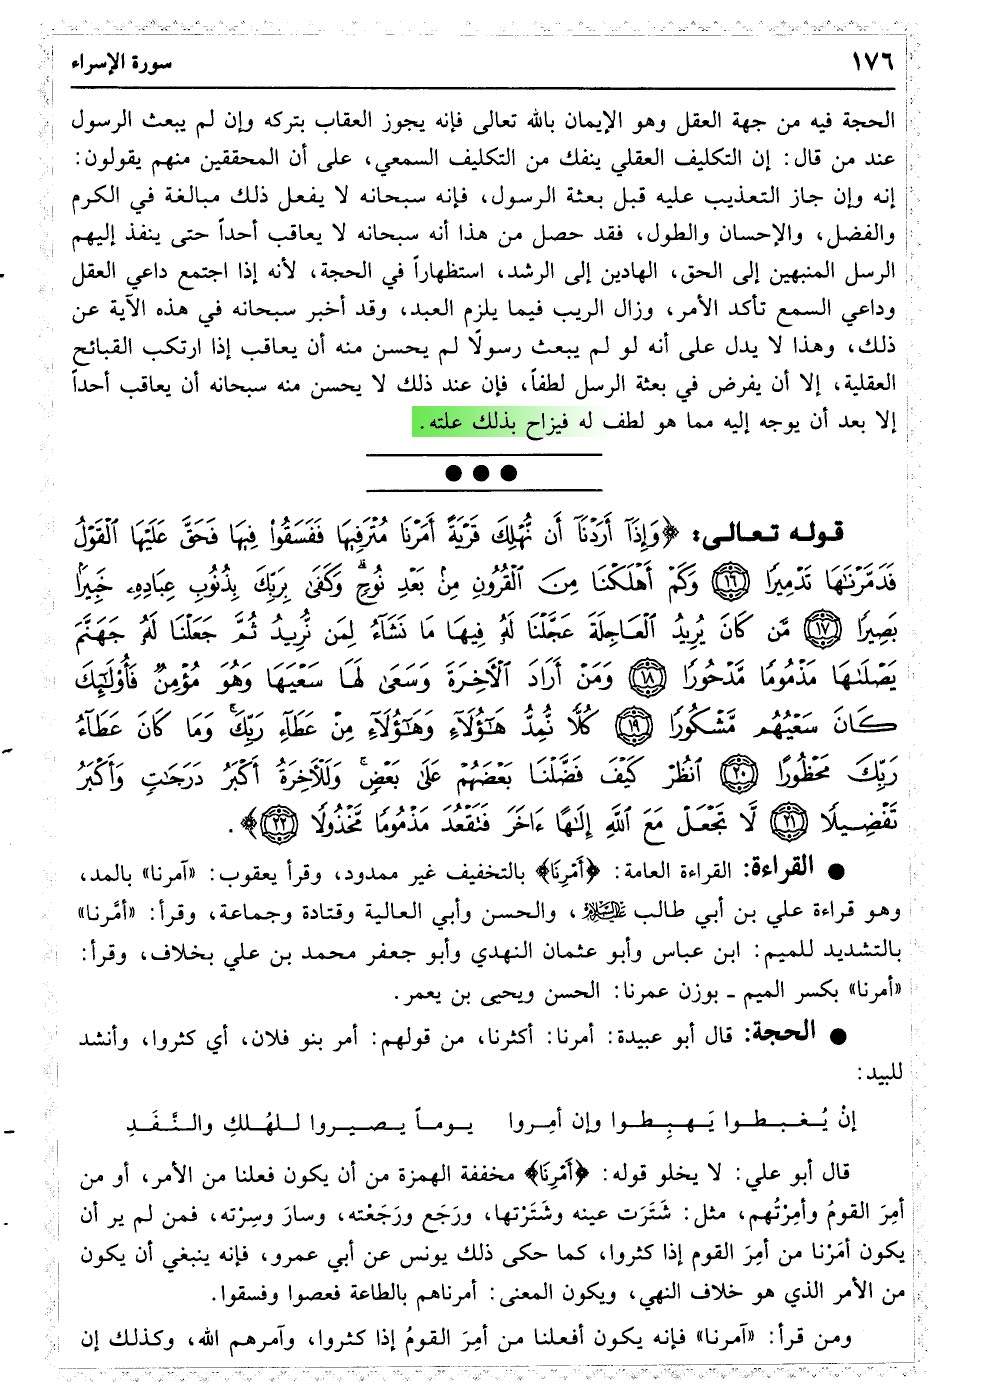 ١٧٦
سورة الإسراء
الحجة فيه من جهة العقل وهو الإيمان بالله تعالى فإنه يجوز العقاب بتركه وإن لم يبعث الرسول
عند من قال: إن التكليف العقلي ينفك من التكليف السمعي، على أن المحققين منهم يقولون:
إنه وإن جاز التعذيب عليه قبل بعثة الرسول، فإنه سبحانه لا يفعل ذلك مبالغة في الكرم
والفضل، والإحسان والطول، فقد حصل من هذا أنه سبحانه لا يعاقب أحداً حتى ينفذ إليهم
الرسل المنبهين إلى الحق، الهادين إلى الرشد، استظهاراً في الحجة، لأنه إذا اجتمع داعي العقل
وداعي السمع تأكد الأمر، وزال الريب فيما يلزم العبد، وقد أخبر سبحانه في هذه الآية عن
ذلك، وهذا لا يدل على أنه لو لم يبعث رسولًا لم يحسن منه أن يعاقب إذا ارتكب القبائح
العقلية، إلا أن يفرض في بعثة الرسل لطفاً، فإن عند ذلك لا يحسن منه سبحانه أن يعاقب أحداً
إلا بعد أن يوجه إليه مما هو لطف له فيزاح بذلك علته.
قوله تعالى: ﴿وَإِذَآ أَرَدْنَآ أَن نُّهْلِكَ قَرْيَةً أَمَرْنَا مُتْرَفِيهَا فَفَسَقُوا۟ فِيهَا فَحَقَّ عَلَيْهَا ٱلْقَوْلُ
فَدَمَّرْنَٰهَا تَدْمِيرًا ١٦ وَكَمْ أَهْلَكْنَا مِنَ ٱلْقُرُونِ مِنۢ بَعْدِ نُوحٍ ۗ وَكَفَىٰ بِرَبِّكَ بِذُنُوبِ عِبَادِهِۦ خَبِيرًۢا
بَصِيرًا ١٧ مَّن كَانَ يُرِيدُ ٱلْعَاجِلَةَ عَجَّلْنَا لَهُۥ فِيهَا مَا نَشَآءُ لِمَن نُّرِيدُ ثُمَّ جَعَلْنَا لَهُۥ جَهَنَّمَ
يَصْلَىٰهَا مَذْمُومًا مَّدْحُورًا ١٨ وَمَنْ أَرَادَ ٱلْآخِرَةَ وَسَعَىٰ لَهَا سَعْيَهَا وَهُوَ مُؤْمِنٌ فَأُو۟لَٰٓئِكَ
كَانَ سَعْيُهُم مَّشْكُورًا ١٩ كُلًّا نُّمِدُّ هَٰٓؤُلَآءِ وَهَٰٓؤُلَآءِ مِنْ عَطَآءِ رَبِّكَ ۚ وَمَا كَانَ عَطَآءُ
رَبِّكَ مَحْظُورًا ٢٠ ٱنظُرْ كَيْفَ فَضَّلْنَا بَعْضَهُمْ عَلَىٰ بَعْضٍ ۚ وَلَلْآخِرَةُ أَكْبَرُ دَرَجَٰتٍ وَأَكْبَرُ
تَفْضِيلًا ٢١ لَّا تَجْعَلْ مَعَ ٱللَّهِ إِلَٰهًا ءَاخَرَ فَتَقْعُدَ مَذْمُومًا مَّخْذُولًا ٢٢﴾.
● القراءة: القراءة العامة: ﴿أَمَرْنَا﴾ بالتخفيف غير ممدود، وقرأ يعقوب: «آمرنا» بالمد،
وهو قراءة علي بن أبي طالب عليه السلام، والحسن وأبي العالية وقتادة وجماعة، وقرأ: «أمَّرنا»
بالتشديد للميم: ابن عباس وأبو عثمان النهدي وأبو جعفر محمد بن علي بخلاف، وقرأ:
«أمرنا» بكسر الميم ـ بوزن عمرنا: الحسن ويحيى بن يعمر.
● الحجة: قال أبو عبيدة: أمرنا: أكثرنا، من قولهم: أمر بنو فلان، أي كثروا، وأنشد
للبيد:
إنْ يُغبطوا يَهبِطوا وإن أمِروا يوماً يصيروا للهُلكِ والنَّفَدِ
قال أبو علي: لا يخلو قوله: ﴿أَمَرْنَا﴾ مخففة الهمزة من أن يكون فعلنا من الأمر، أو من
أمِرَ القومُ وأمِرْتُهم، مثل: شَتَرَت عينه وشَتَرْتها، ورَجَع ورَجَعْته، وسارَ وسِرْته، فمن لم ير أن
يكون أمَرْنا من أمِرَ القوم إذا كثروا، كما حكى ذلك يونس عن أبي عمرو، فإنه ينبغي أن يكون
من الأمر الذي هو خلاف النهي، ويكون المعنى: أمرناهم بالطاعة فعصوا وفسقوا.
ومن قرأ: «آمرنا» فإنه يكون أفعلنا من أمِرَ القومُ إذا كثروا، وآمرهم الله، وكذلك إن